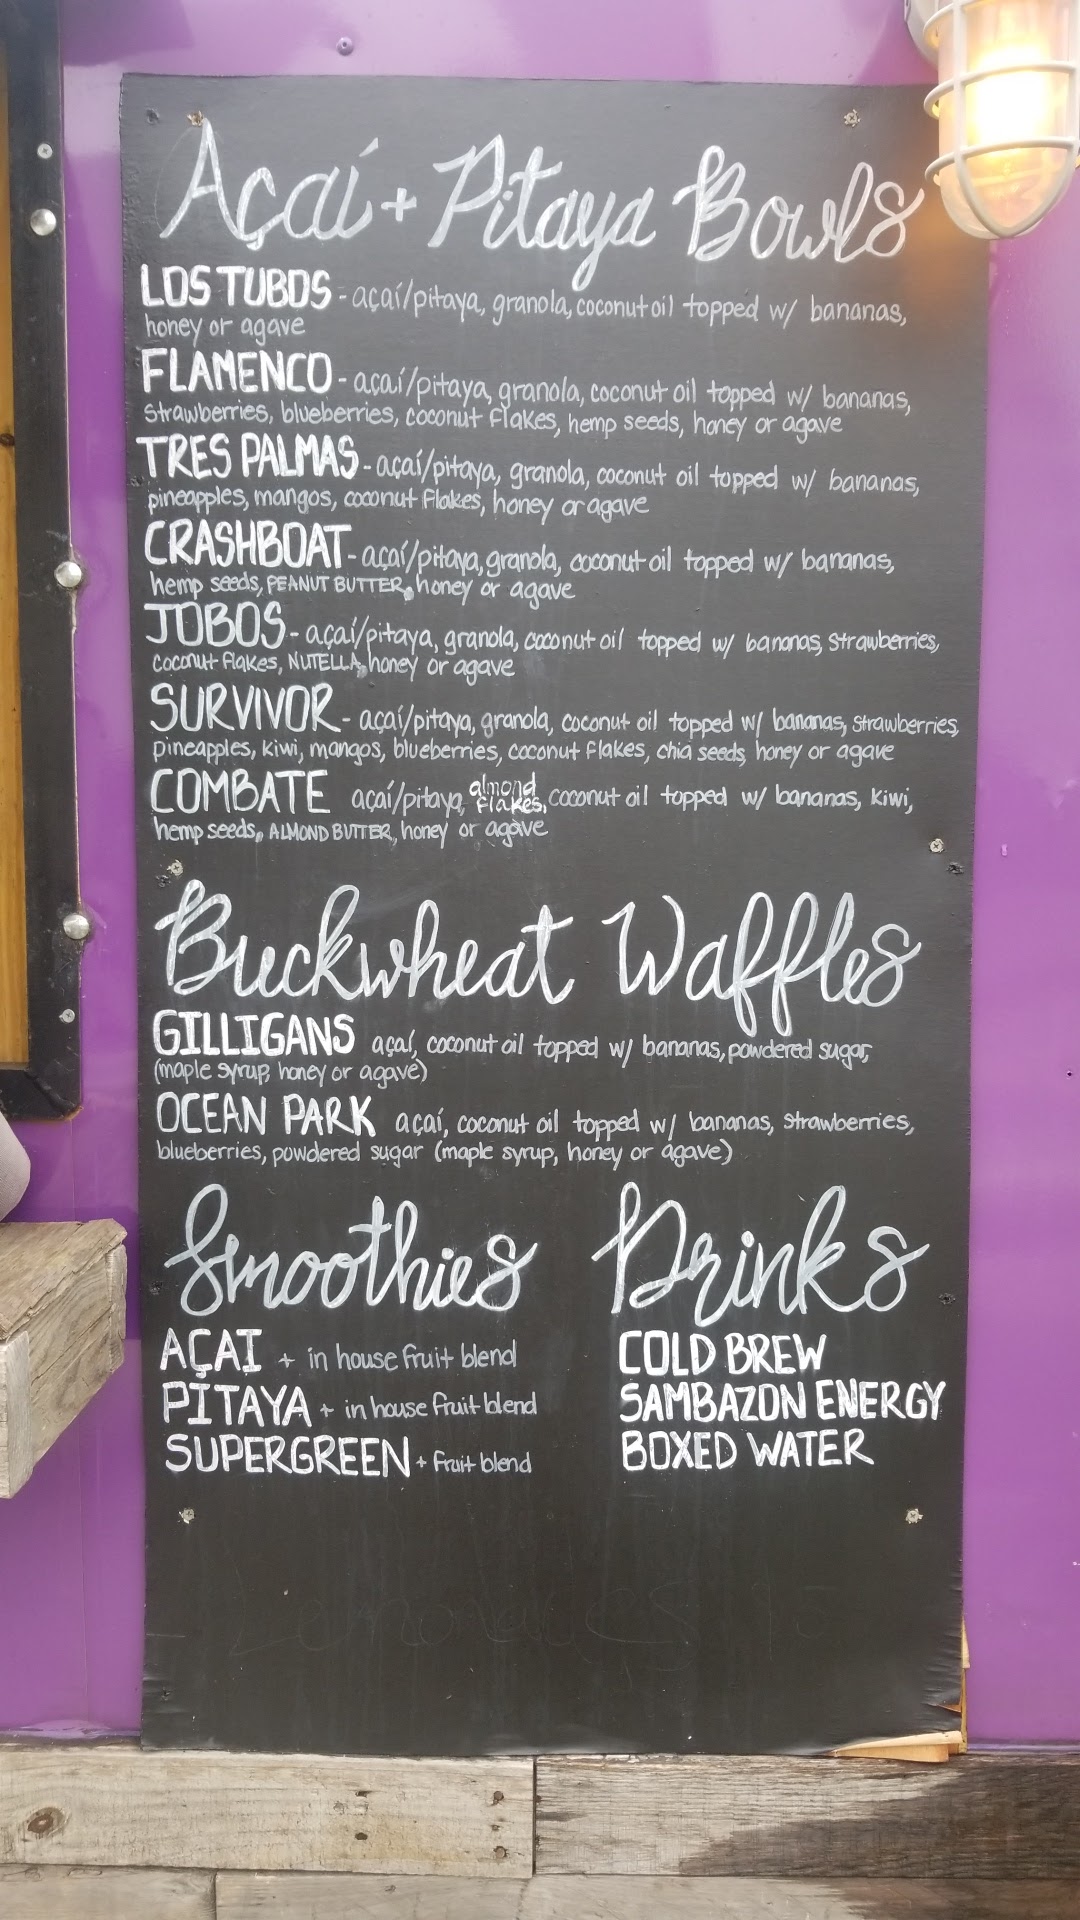 Açaí + Pitaya Bowls
LOS TUBOS - açaí/pitaya, granola, coconut oil topped w/ bananas,
honey or agave
FLAMENCO - açaí/pitaya, granola, coconut oil topped w/ bananas,
strawberries, blueberries, coconut flakes, hemp seeds, honey or agave
TRES PALMAS - açaí/pitaya, granola, coconut oil topped w/ bananas,
pineapples, mangos, coconut flakes, honey or agave
CRASHBOAT - açaí/pitaya, granola, coconut oil topped w/ bananas,
hemp seeds, PEANUT BUTTER, honey or agave
JOBOS - açaí/pitaya, granola, coconut oil topped w/ bananas, strawberries,
coconut flakes, NUTELLA, honey or agave
SURVIVOR - açaí/pitaya, granola, coconut oil topped w/ bananas, strawberries,
pineapples, kiwi, mangos, blueberries, coconut flakes, chia seeds, honey or agave
COMBATE açaí/pitaya, almond flakes, coconut oil topped w/ bananas, kiwi,
hemp seeds, ALMOND BUTTER, honey or agave
Buckwheat Waffles
GILLIGANS açaí, coconut oil topped w/ bananas, powdered sugar,
(maple syrup, honey or agave)
OCEAN PARK açaí, coconut oil topped w/ bananas, strawberries,
blueberries, powdered sugar (maple syrup, honey or agave)
Smoothies
AÇAI + in house fruit blend
PITAYA + in house fruit blend
SUPERGREEN + fruit blend
Drinks
COLD BREW
SAMBAZON ENERGY
BOXED WATER